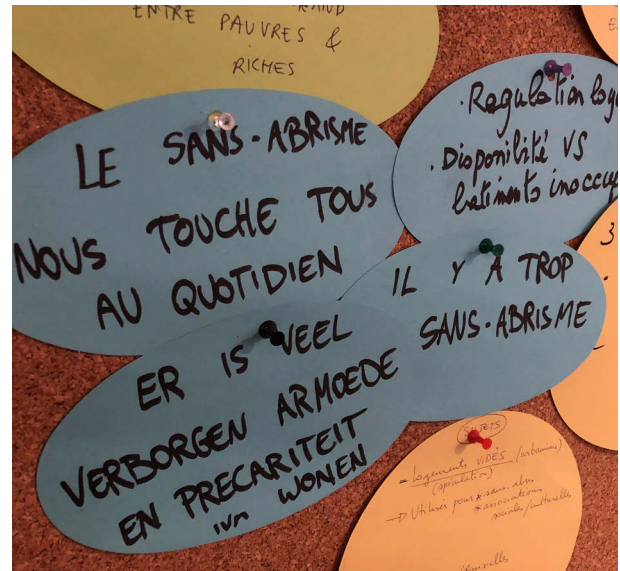 ENTRE PAUVRES &
RICHES
LE SANS-ABRISME
NOUS TOUCHE TOUS
AU QUOTIDIEN
. Regulation
. Disponibilité VS
batiments
IL Y A TROP
SANS-ABRISME
ER IS VEEL
VERBORGEN ARMOEDE
EN PRECARITEIT
ivm WONEN
3
SUJETS
- logements VIDÉS (urbanisme)
(spéculation)
-> Utiliser pour * sans-abris
* associations
sociales/culturelles